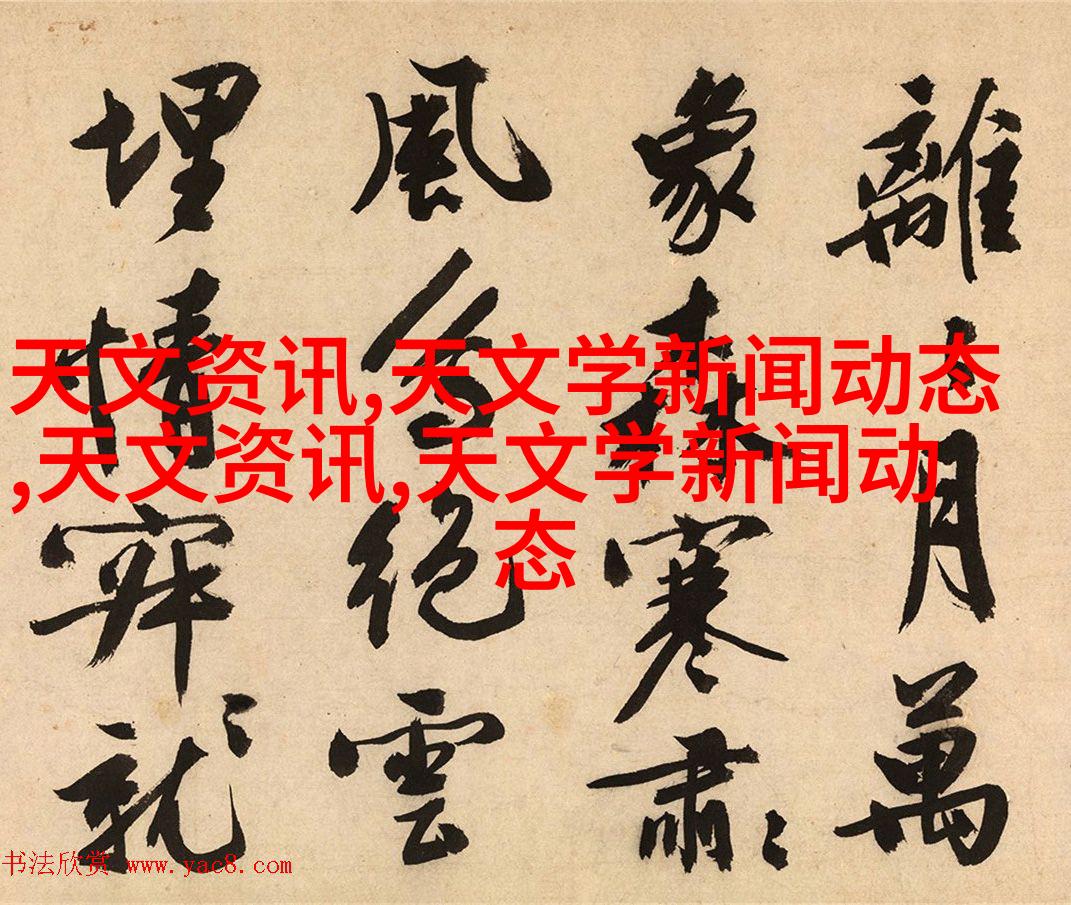 天文资讯,天文学新闻动态
,天文资讯,天文学新闻动
态
離月萬
象森寒肅
風絕雲
埋情
书法欣赏 www.yac8.com